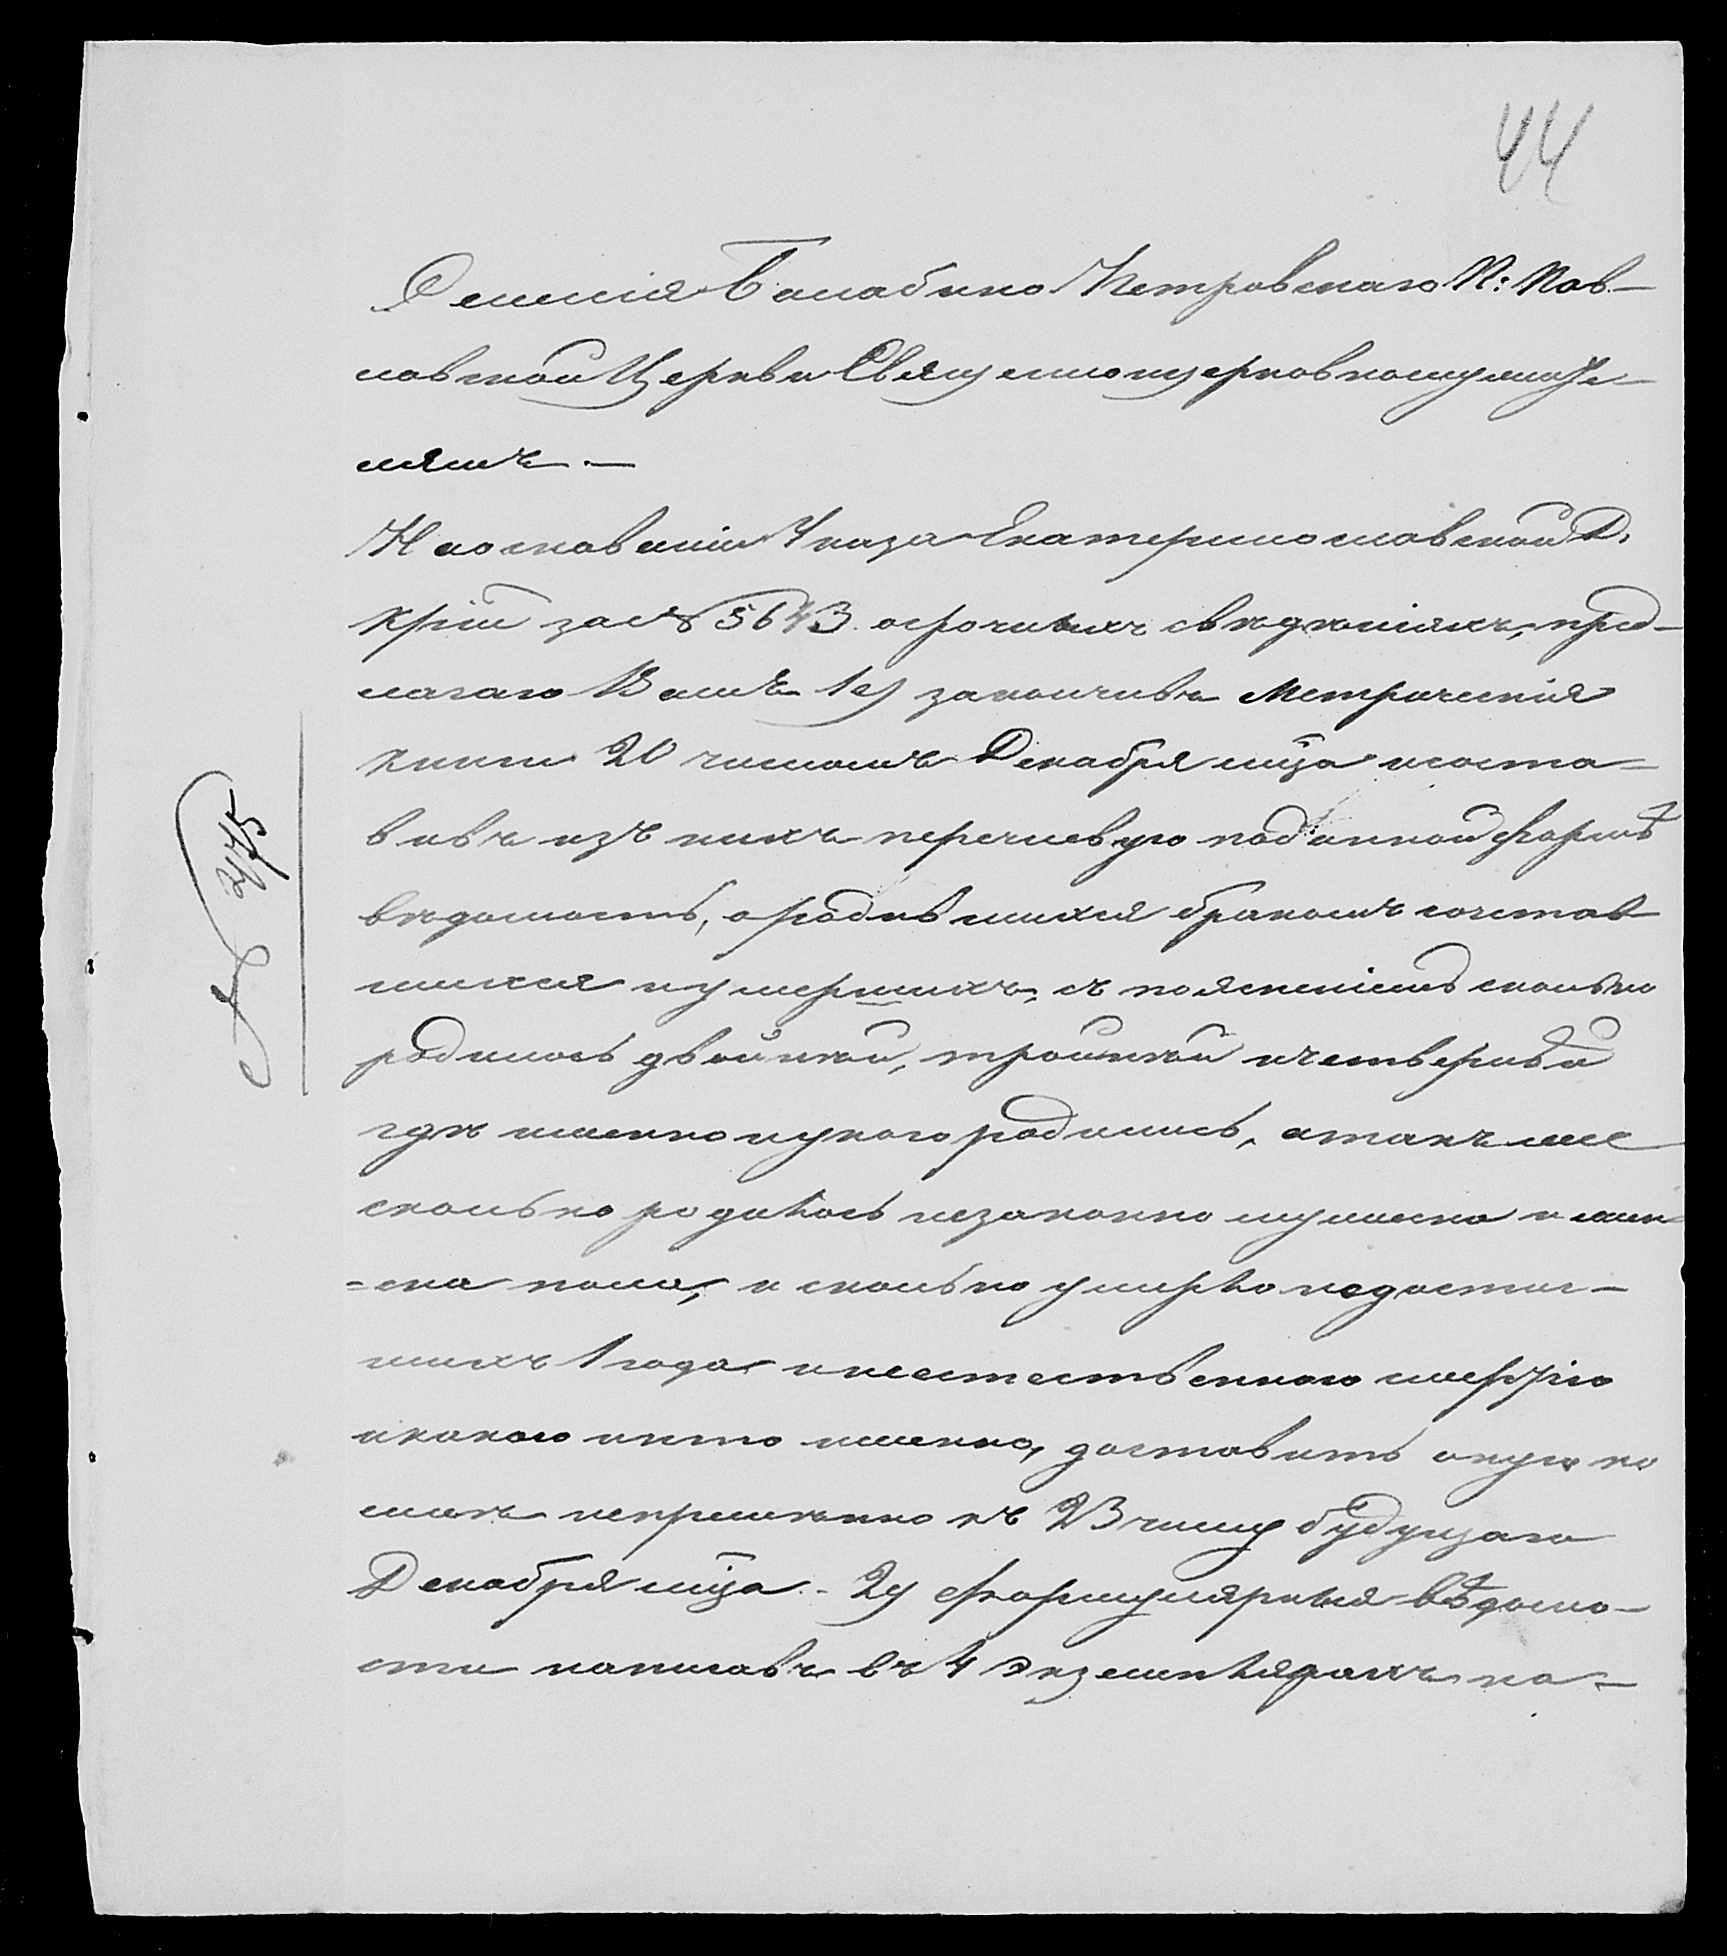 44
Селенія Балабино Петровскаго П: Пав-
ловской Церкви Священноцерковнослужи-
телямъ. —
На основаніи Указа Екатеринославской Д.
К҃ріи за № 5643 о срочныхъ свѣдѣніяхъ, пред-
лагаю Вамъ 1е) закончивъ Метрическія
книги 20 числомъ Декабря м҃ца и соста-
вивъ изъ нихъ перечневую по данной формѣ
вѣдомость, о родившихся бракомъ сочетав
шихся и умершихъ, съ поясненіемъ сколько
родилось двойней, тройней и четверней
гдѣ именно и у кого родились, а такъ же
сколько родилось незаконно мужеска и жен-
=ска пола, и сколько умерло недостиг-
шихъ 1 года и неестественною смертію
и какою и кто именно, доставить оную ко
мнѣ непремѣнно къ 23 числу будущаго
Декабря м҃ца. - 2) Формулярныя вѣдомо-
сти написавъ въ 4 экземплярахъ ка-
№ 275